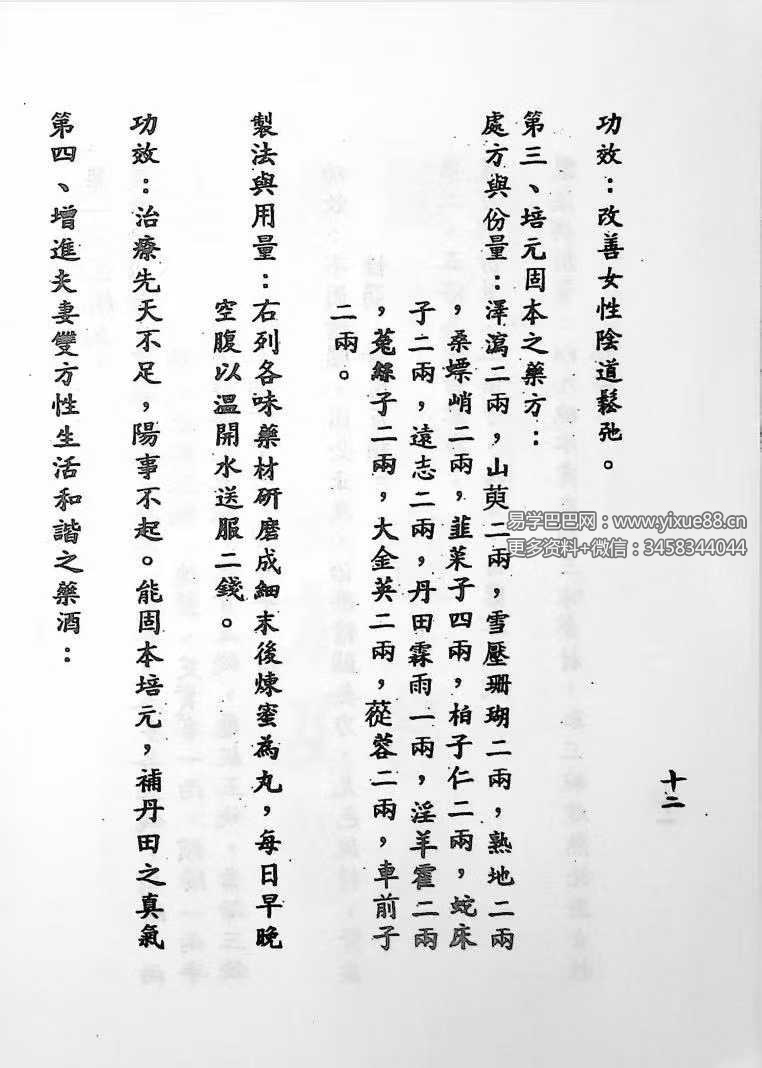 功效：改善女性陰道鬆弛。
第三、培元固本之藥方：
處方與份量：澤瀉二兩，山萸二兩，雪壓珊瑚二兩，熟地二兩
，桑螵蛸二兩，韭菜子四兩，柏子仁二兩，蛇床
子二兩，遠志二兩，丹田霖雨一兩，淫羊霍二兩
，菟絲子二兩，大金英二兩，蓯蓉二兩，車前子
二兩。
製法與用量：右列各味藥材研磨成細末後煉蜜為丸，每日早晚
空腹以溫開水送服二錢。
功效：治療先天不足，陽事不起。能固本培元，補丹田之真氣
第四、增進夫妻雙方性生活和諧之藥酒：
十二
易学巴巴网：www.yixue88.cn
更多资料+微信：3458344044